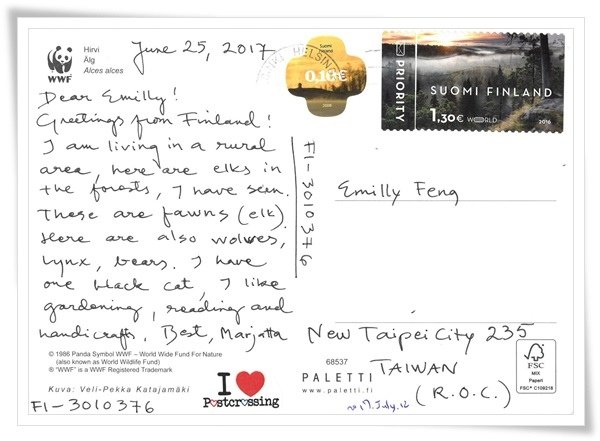 WWF
Hirvi
Älg
Alces alces
June 25, 2017
HELSINKI
Suomi
Finland
0,10€
2008
PRIORITY
SUOMI FINLAND
1,30€ WORLD
2016
Dear Emilly!
Greetings from Finland!
I am living in a rural
area, here are elks in
the forests, I have seen.
These are fawns (elk).
Here are also wolves,
lynx, bears. I have
one black cat, I like
gardening, reading and
handicrafts, Best, Marjatta
FI-3010376
Emilly Feng
New Taipei City 235
TAIWAN
(R.O.C.)
© 1986 Panda Symbol WWF – World Wide Fund For Nature
(also known as World Wildlife Fund)
® "WWF" is a WWF Registered Trademark
Kuva: Veli-Pekka Katajamäki
FI-3010376
I
Postcrossing
68537
PALETTI
www.paletti.fi
17. July, 12
FSC
MIX
Paperi
FSC® C109218